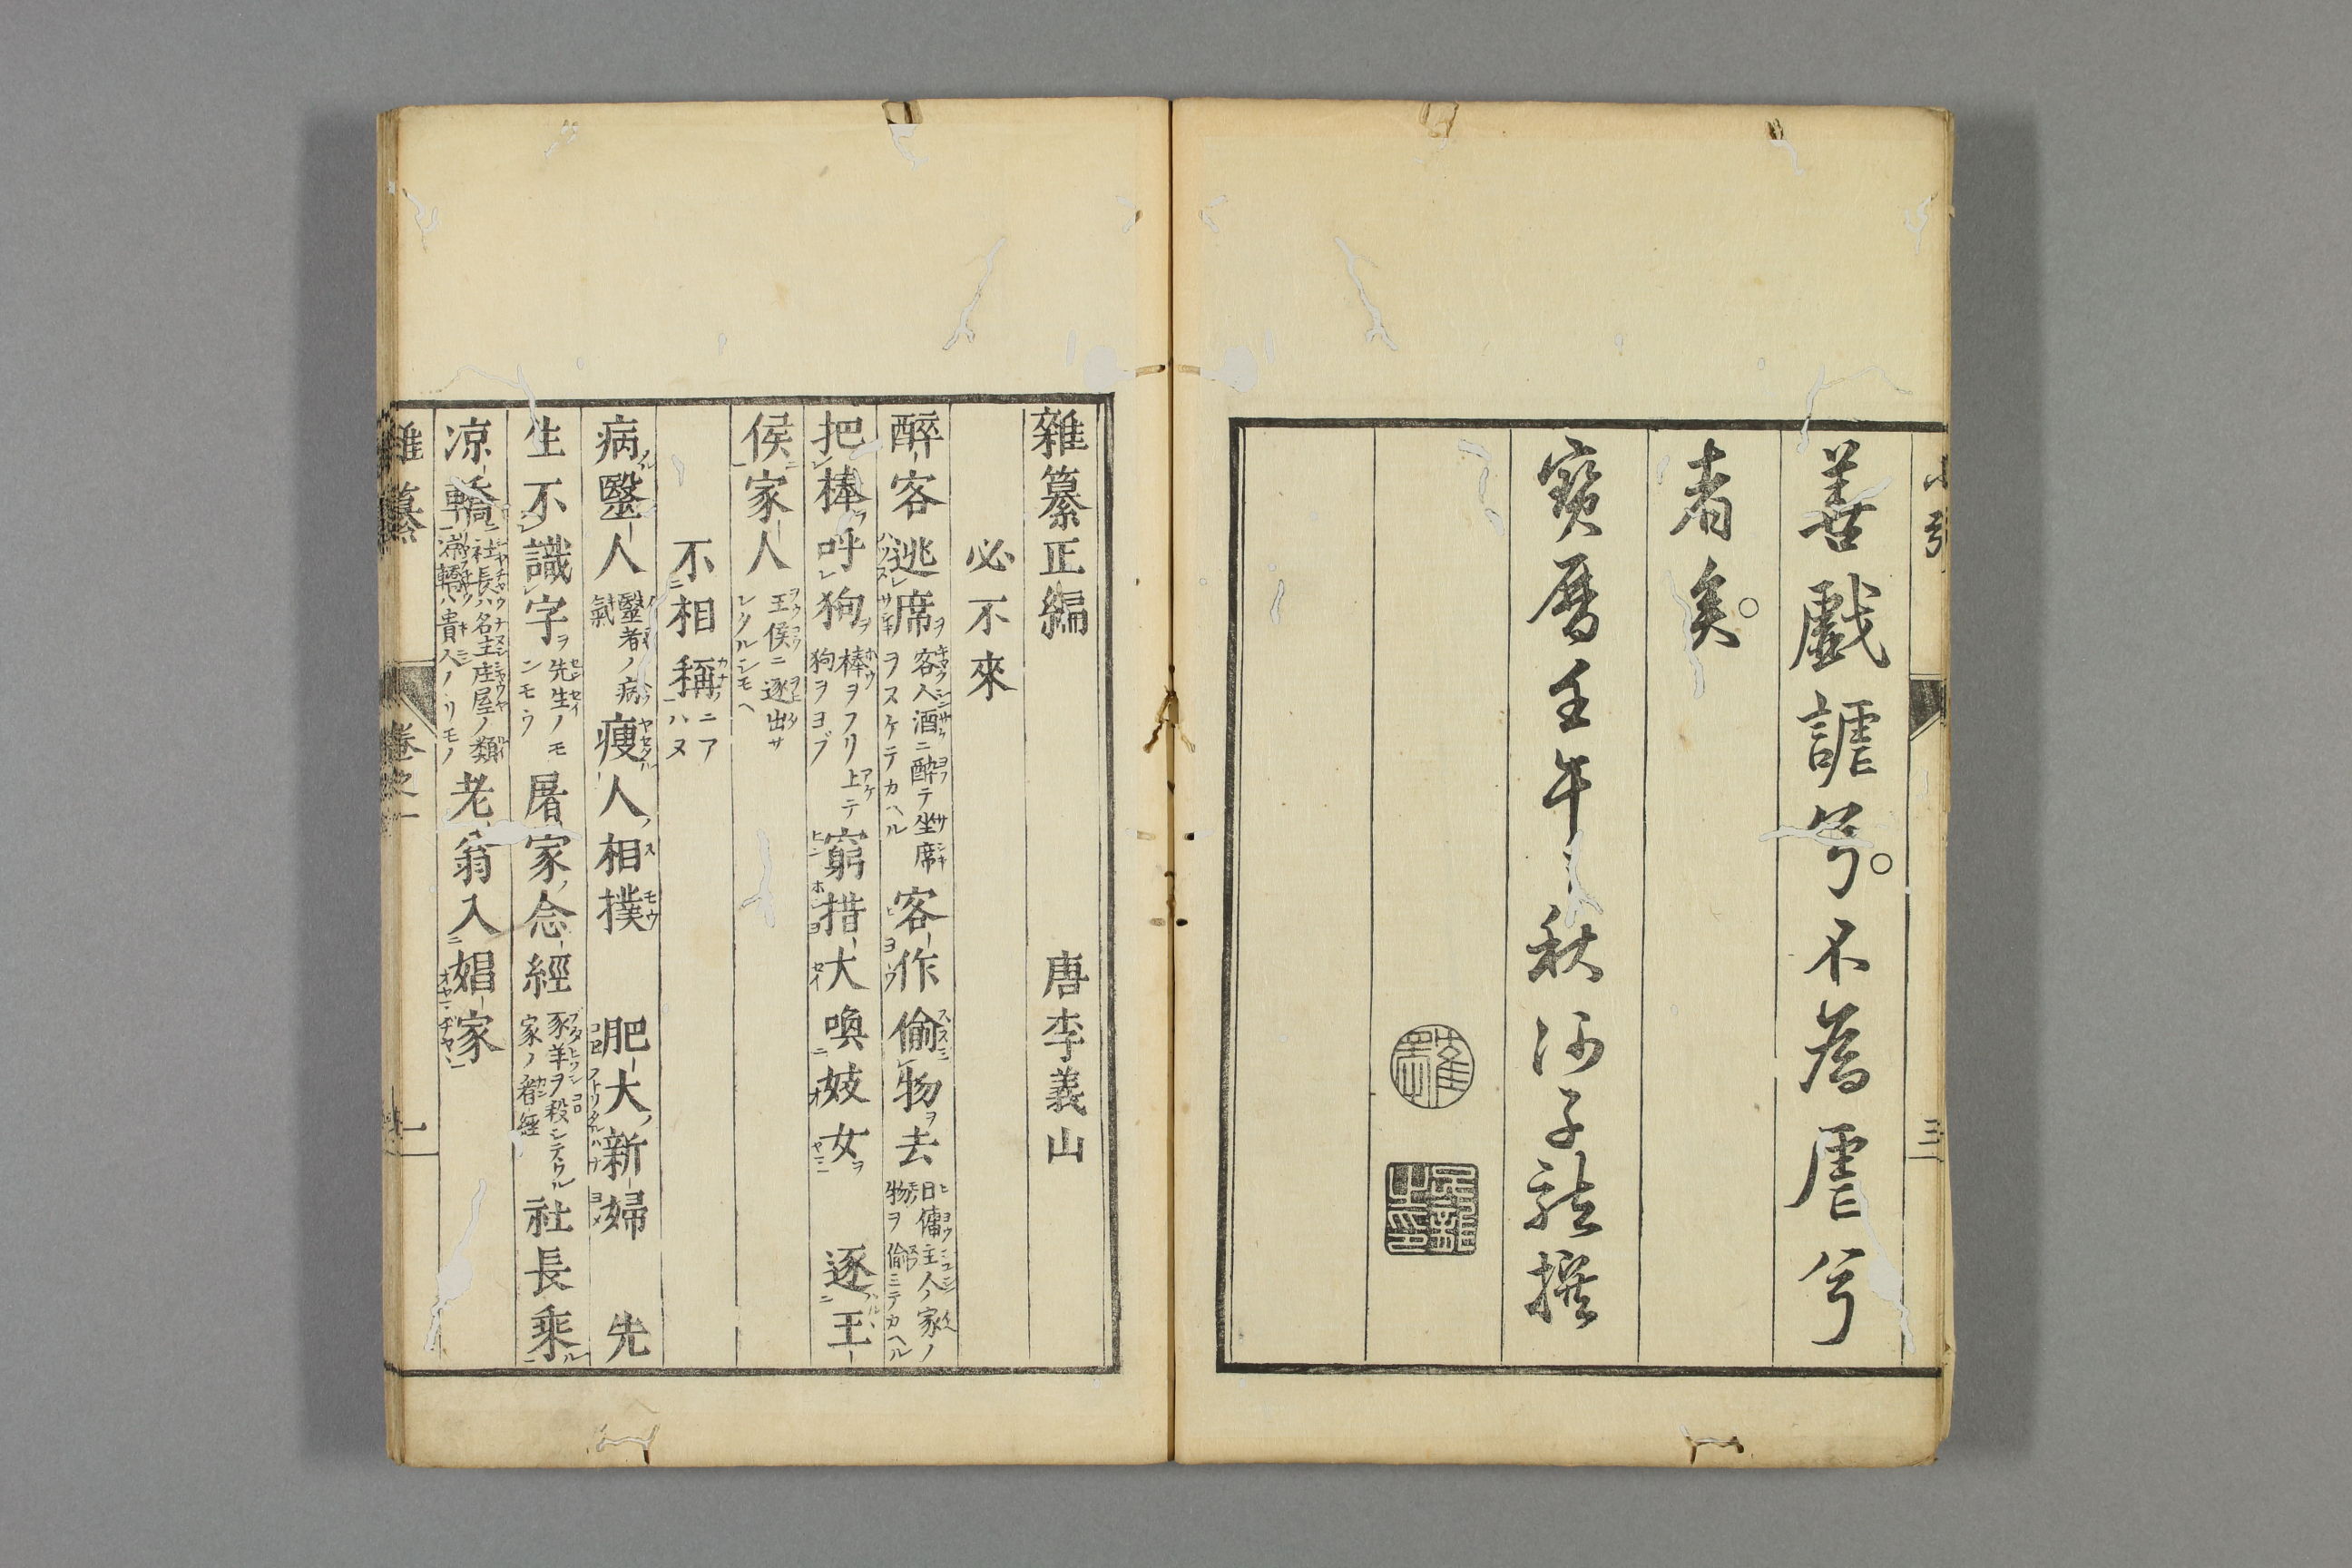 小引
三
善戲謔兮。不為虐兮
者矣。
寶曆壬午秋沙子龍撰
雜纂正編 唐李義山
必不來
醉客逃席 客人酒ニ醉テ坐席ヲヌケテカヘル 客作偷物去 日傭主人ノ家ノ物ヲ偷ミテカヘル
把棒呼狗 棒ヲフリ上テ狗ヲヨブ 窮措大喚妓女 逐王
侯家人 王侯ニ逐出サレタルシモベ
不相稱 ニアハヌ
病醫人 醫者ノ病氣 瘦人相撲 肥大新婦 先
生不識字 先生ノモンモウ 屠家念經 豕羊ヲ殺シテウル家ノ看經 社長乘
凉轎 社長ハ名主庄屋ノ類凉轎ハ貴人ノノリモノ 老翁入娼家
雜纂 卷之一 一